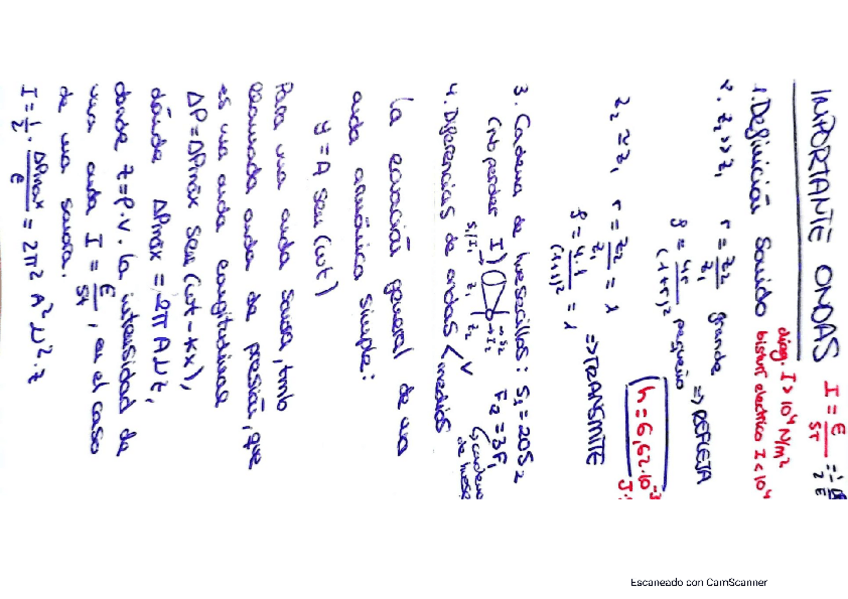 IMPORTANTE ONDAS I = E/St
1. Definición Sonido
diag. I > 10⁴ N/m²
bisturí electrico I < 10⁴
2. z₂ >> z₁ r = z₂/z₁ grande
f = 4r/(1+r)² pequeño => REFLEJA
z₂ ≃ z₁ r = z₂/z₁ = 1
f = 4·1/(1+1)² = 1 => TRANSMITE
h = 6,62·10
3. Cadena de huesecillos: S₁ = 20S₂
(No perder I) F₂ = 3F₁
cadena de hueso
4. Diferencias de ondas < v medios
La ecuación general de una
onda armónica simple:
y = A sen (wt)
Para una onda sonora, tmb
llamada onda de presión, que
es una onda longitudinal
ΔP = ΔPmáx sen (wt - kx),
dónde ΔPmáx = -2π A ν z,
donde z = ρ.v. La intensidad de
una onda I = E/St, en el caso
de una sonora.
I = 1/2 · ΔPmax²/z = 2π² A² ν² · z
Escaneado con CamScanner